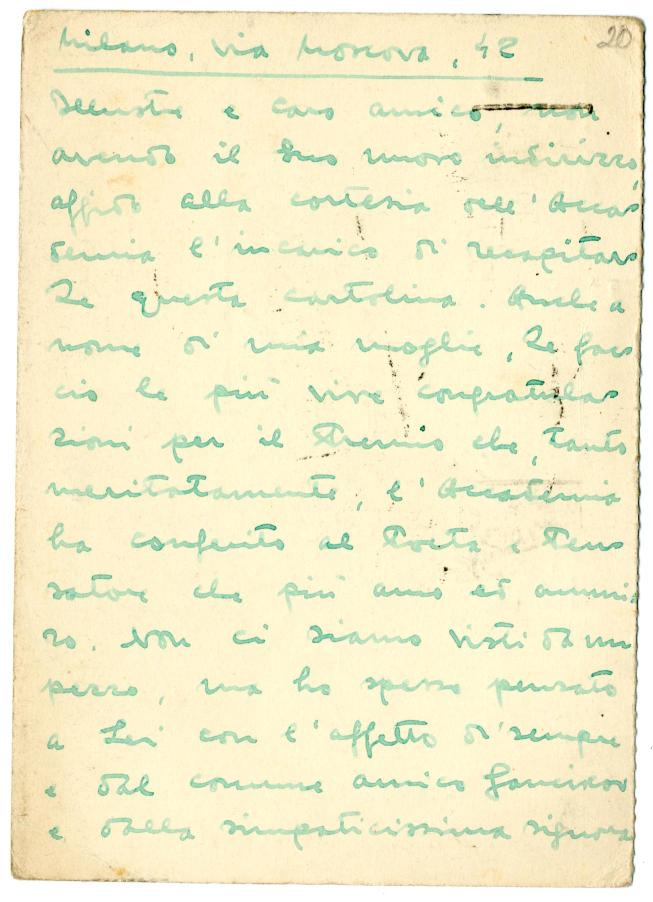 20
Milano, via Moscova, 42
Illustre e caro amico, non
avendo il Suo nuovo indirizzo,
affido alla cortesia dell'Acca-
demia l'incarico di recapitar-
Le questa cartolina. Anche a
nome di mia moglie, Le fac-
cio le più vive congratula-
zioni per il Premio che, tanto
meritatamente, l'Accademia
ha conferito al Poeta e Pen-
satore che più amo ed ammi-
ro. Non ci siamo visti da un
pezzo, ma ho spesso pensato
a Lei con l'affetto di sempre
e dal comune amico
e dalla simpaticissima signora